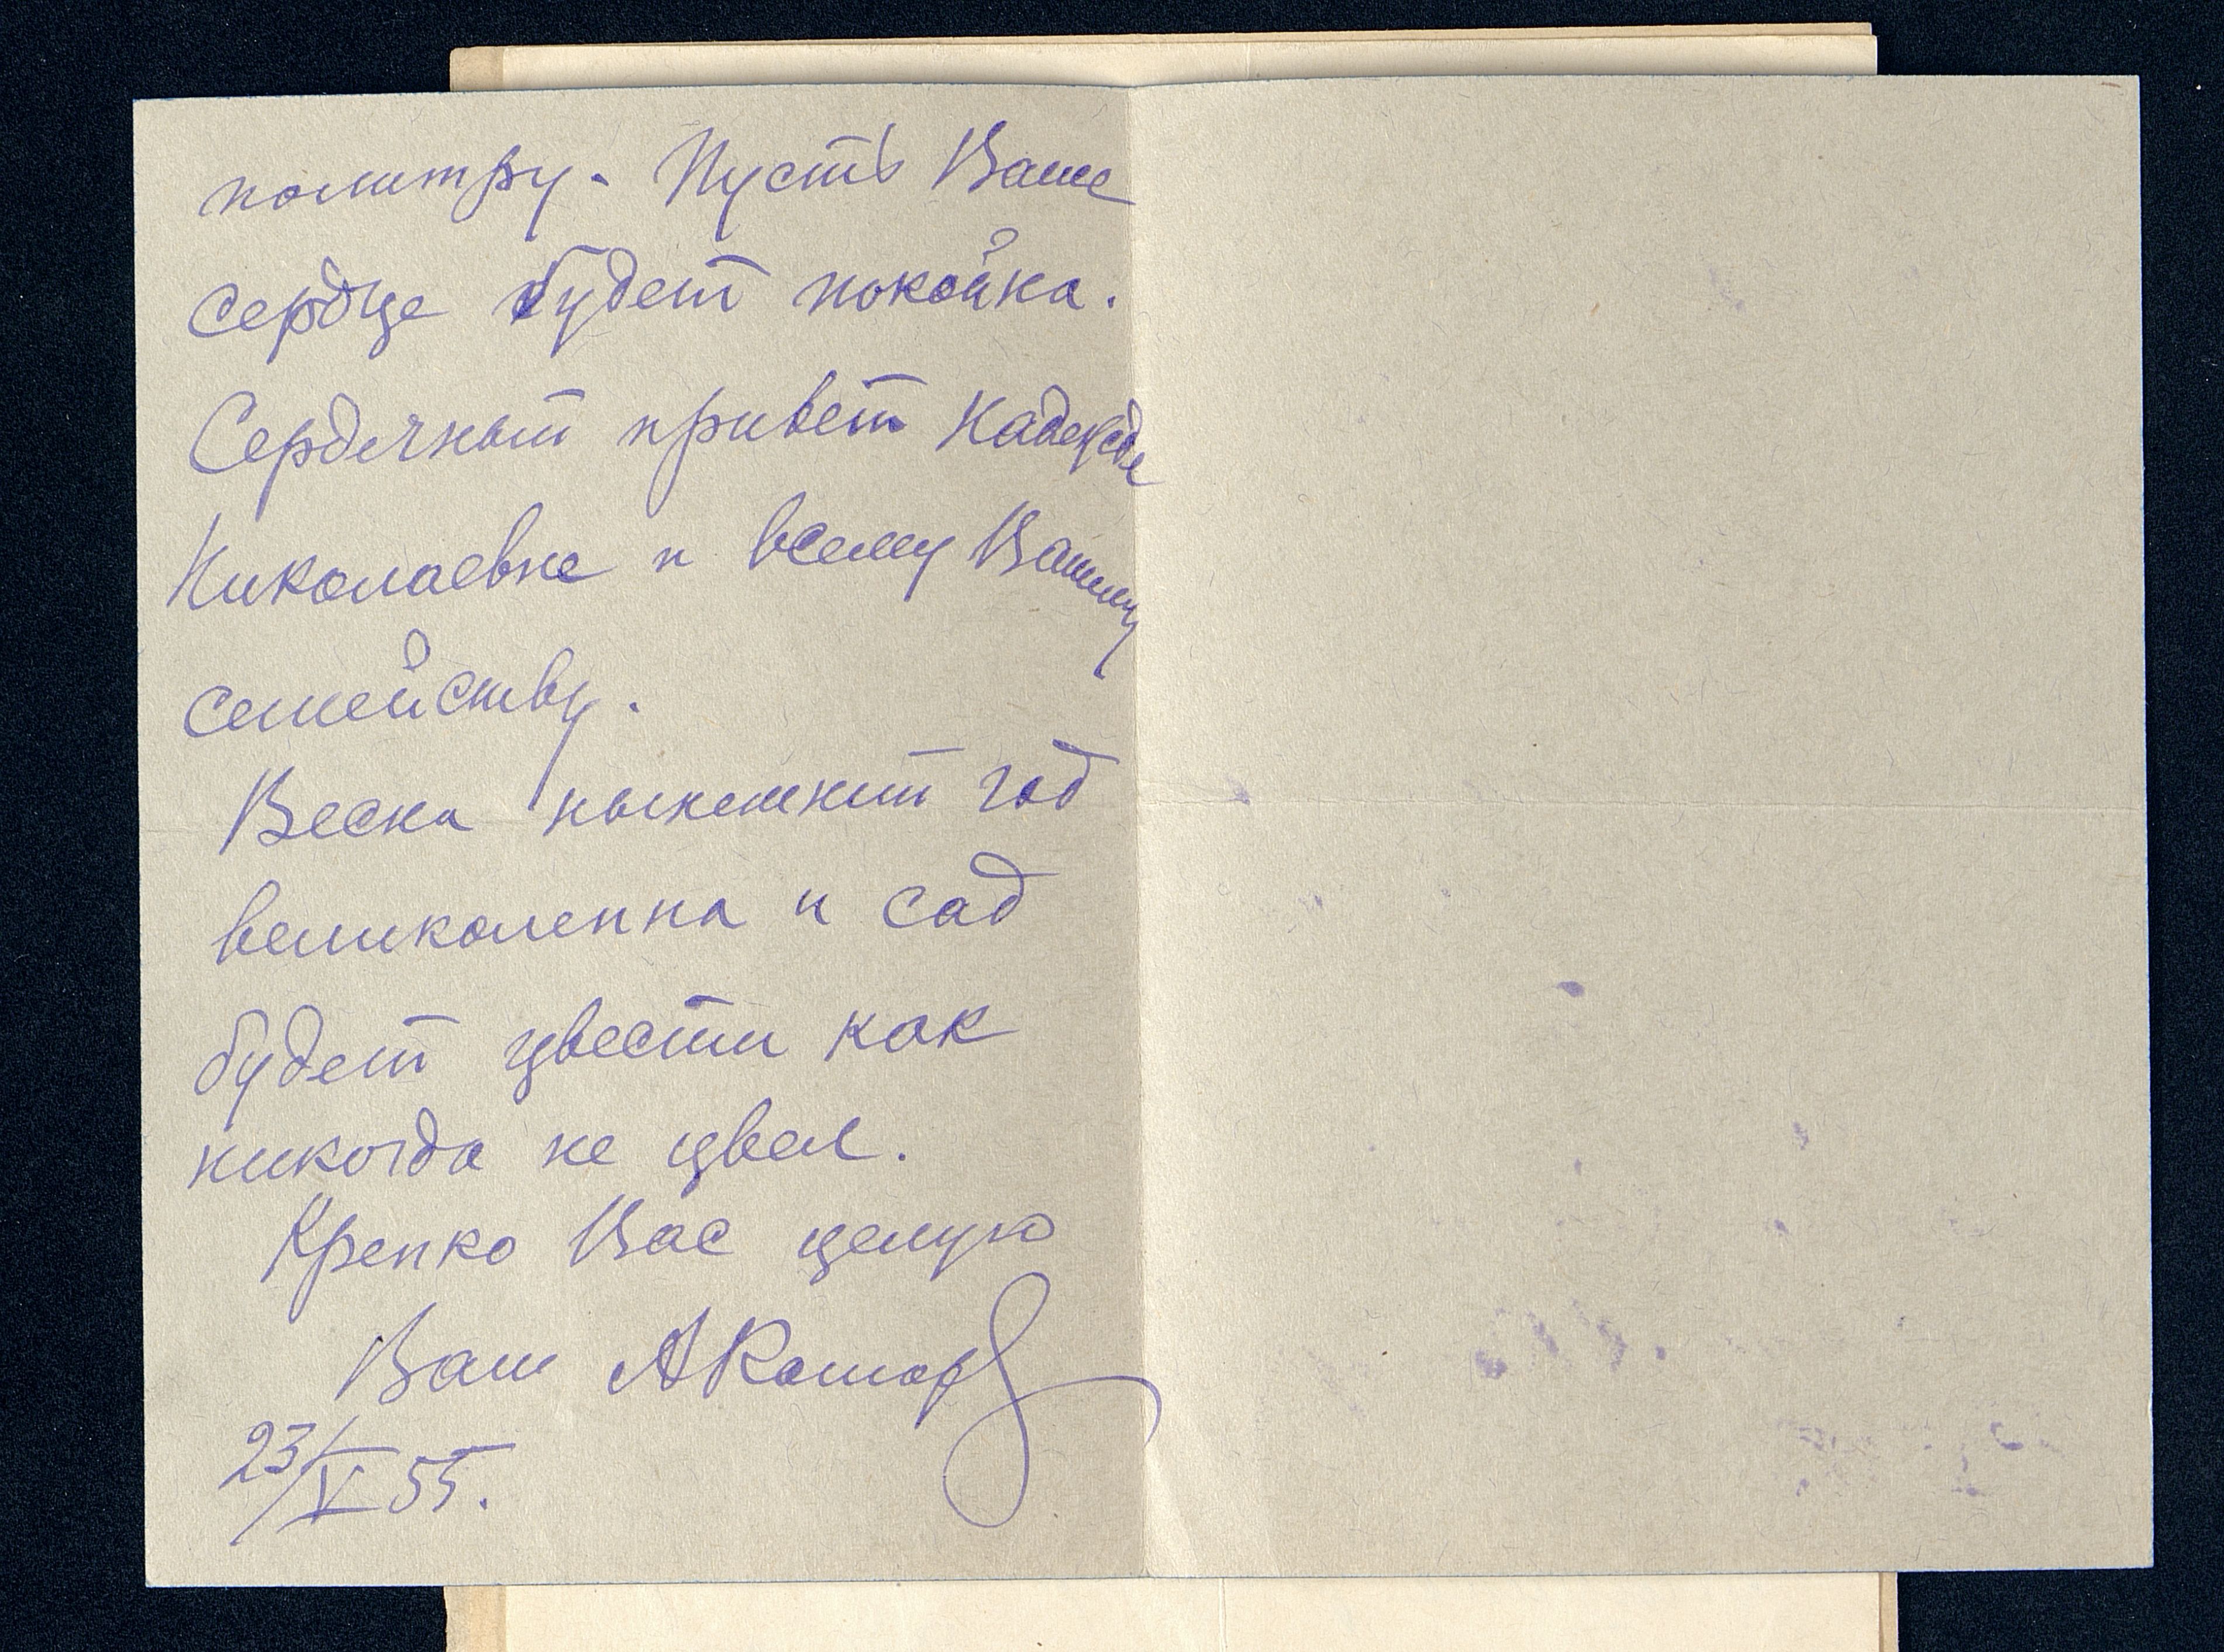 политру. Пусть Ваше
сердце будет покойна.
Сердечный привет Надежде
Николаевне и всему Вашему
семейству.
Весна нынешний год
великолепна и сад
будет цвести как
никогда не цвел.
Крепко Вас целую
Ваш А
23/V 55.